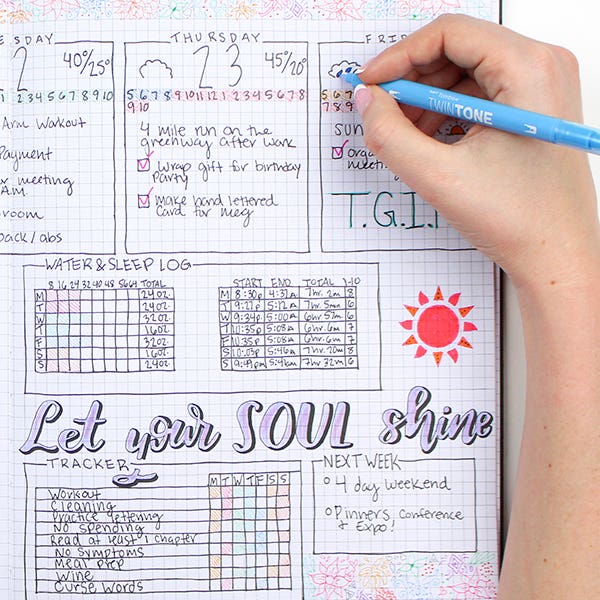 ESDAY
2 40°/25°
1 2 3 4 5 6 7 8 9 10
ARM WORKOUT
PAYMENT
MEETING
A.M.
ROOM
BACK/ABS
THURSDAY
23 45°/20°
5 6 7 8 9 10 11 12 1 2 3 4 5 6 7 8
9 10
4 MILE RUN ON THE
GREENWAY AFTER WORK
WRAP GIFT FOR BIRTHDAY
PARTY
MAKE HAND LETTERED
CARD FOR MEG
FRID
5 6
7 8 9
SUN
ORG
MEETIN
T.G.I.F
TWINTONE
WATER & SLEEP LOG
8 16 24 32 40 48 56 64 TOTAL
M 24 OZ.
T 24 OZ.
W 32 OZ.
T 16 OZ.
F 32 OZ.
S 16 OZ.
S 24 OZ.
START END TOTAL 1-10
M 8:30P 4:32A 7hr. 2m 8
T 9:27P 5:12A 7hr. 5m 6
W 9:34P 5:00A 6hr. 57m 6
T 10:35P 5:08A 6hr. 6m 7
F 10:35P 5:08A 6hr. 6m 7
S 10:03P 5:46A 7hr. 20m 8
S 9:49PM 5:46AM 7hr 32m 6
Let your SOUL shine
TRACKER
M T W T F S S
WORKOUT
CLEANING
PRACTICE LETTERING
NO SPENDING
READ AT LEAST 1 CHAPTER
NO SYMPTOMS
MEAL PREP
WINE
CURSE WORDS
NEXT WEEK
4 DAY WEEKEND
PINNERS CONFERENCE
& EXPO!